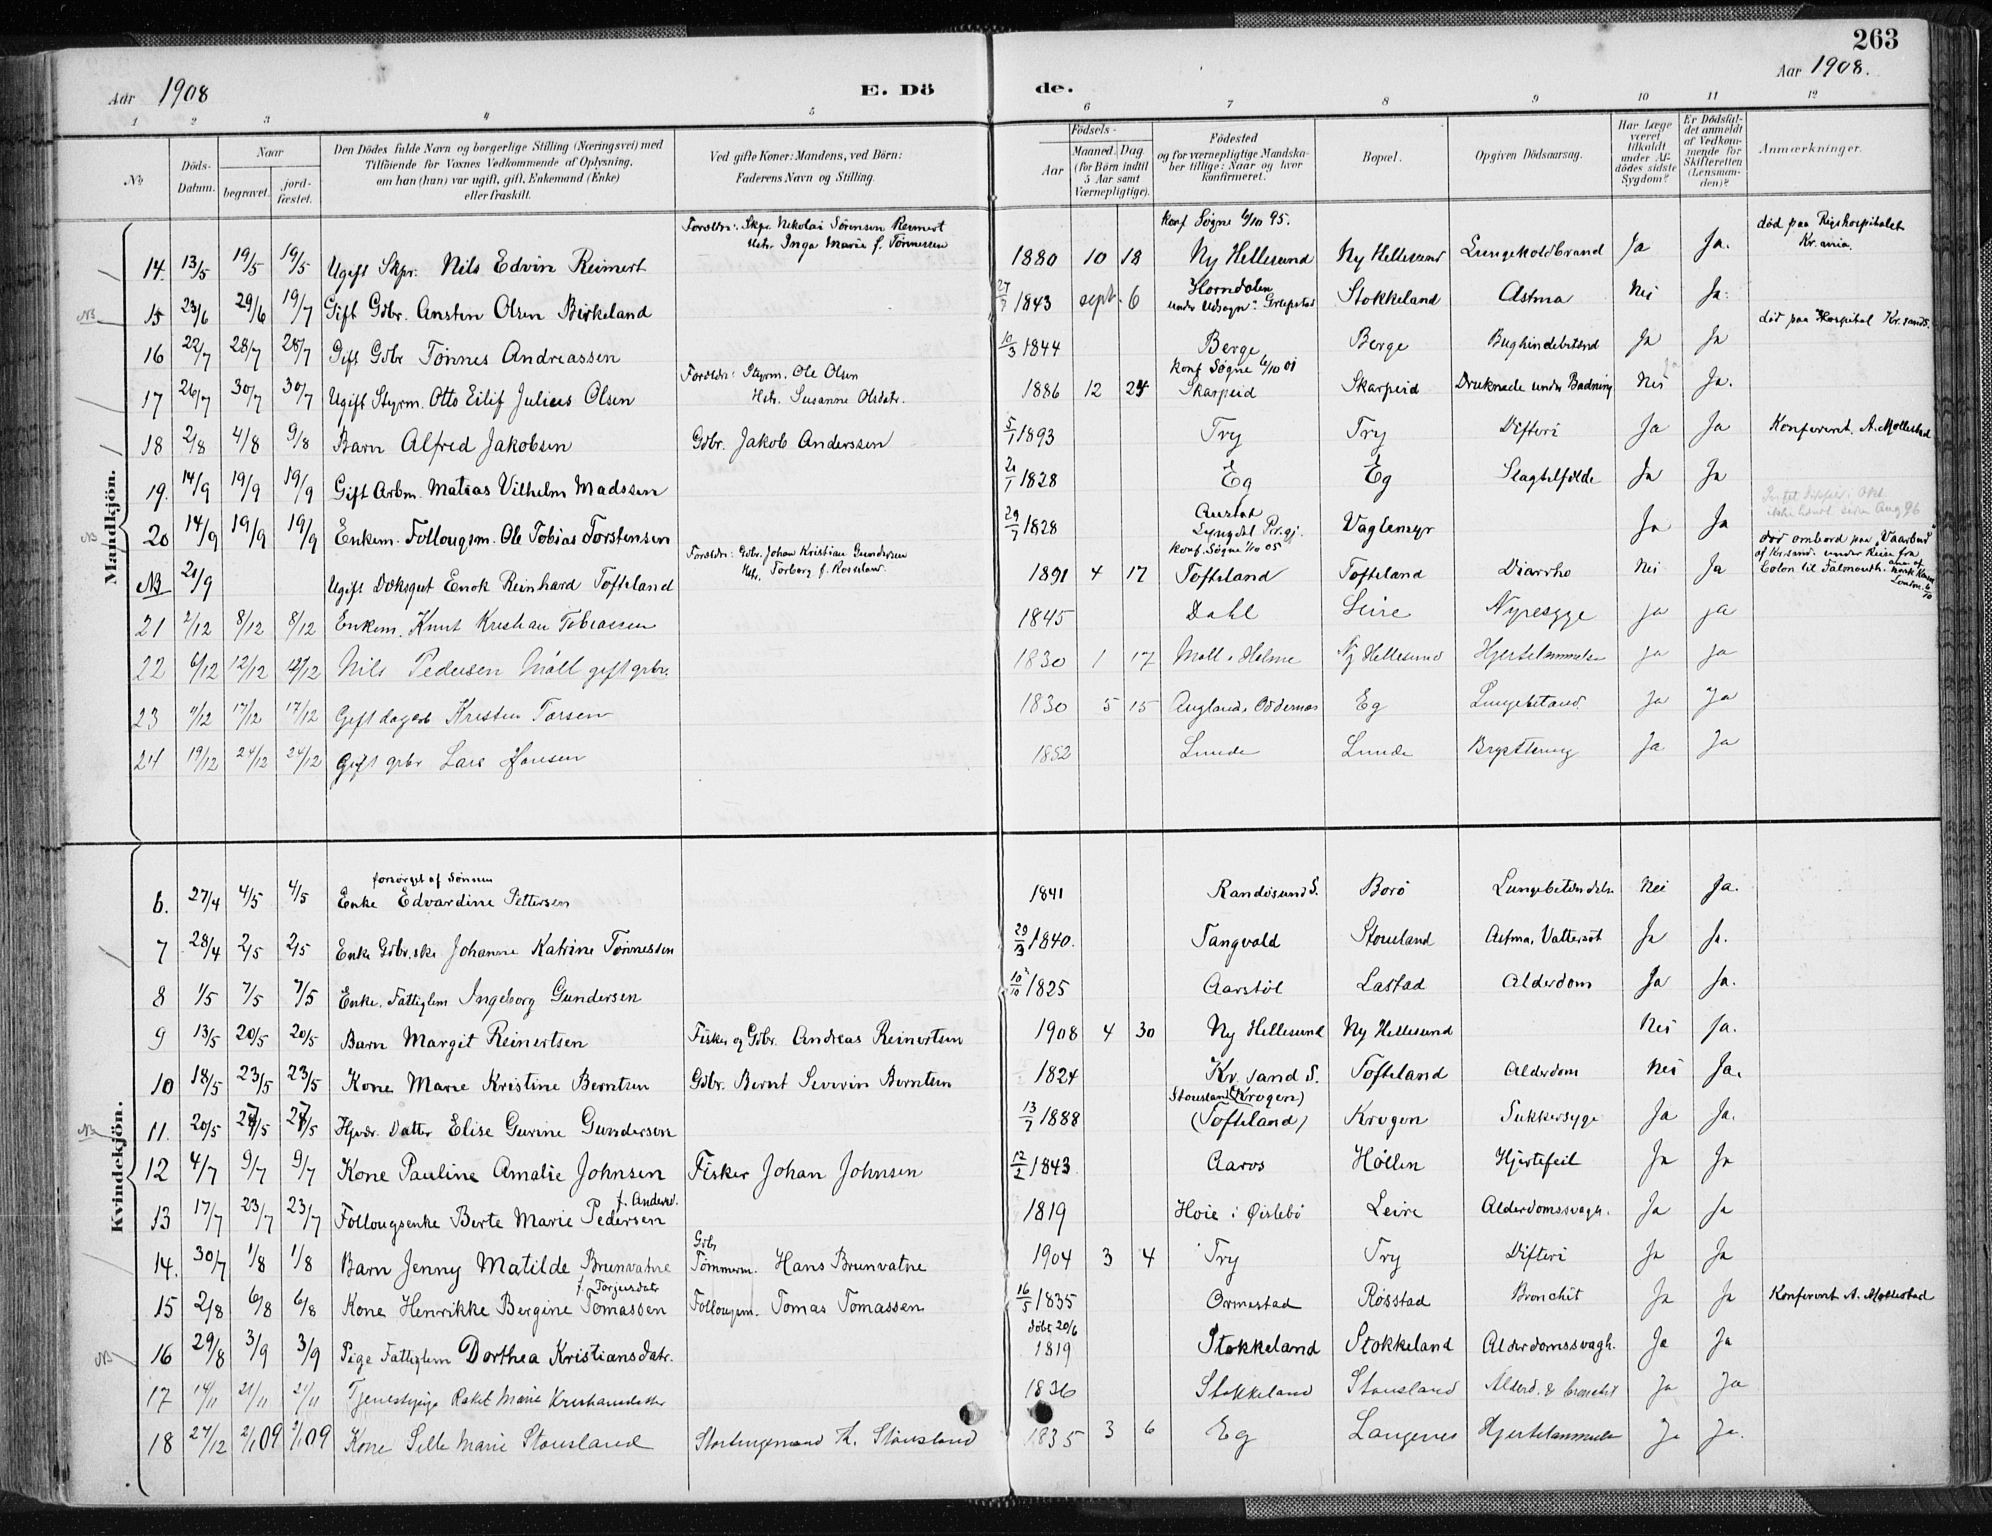 263
Aar 1908
E. Dö
de.
Aar 1908.
1 2 3 4 5 6 7 8 9 10 11 12
No
Döds-Datum.
Naar
begravet.
jord-fæstet.
Den Dödes fulde Navn og borgerlige Stilling (Næringsvei) med
Tilföiende for Voxnes Vedkommende af Oplysning,
om han (hun) var ugift, gift, Enkemand (Enke)
eller fraskilt.
Ved gifte Koner: Mandens, ved Börn:
Faderens Navn og Stilling.
Födsels-
Aar
Maaned. Dag
(for Börn indtil
5 Aar samt
Værnepligtige).
Födested
og for værnepligtige Mandska-
ber tillige: Naar og hvor
konfirmeret.
Bopæl.
Opgiven Dödsaarsag.
Har Læge
været
tilkaldt
under Af-
dödes sidste
Sygdom?
Er Dödsfal-
det anmeldt
af Vedkom-
mende for
Skifteretten
(Lensman-
den)?
Anmærkninger.
Mandkjön.
Foreldr: Skpr. Nikolai Sörensen Reimert Konf Søgne 6/10 95. død paa Rigshospitalet
Hstr. Inga Marie f. Tönnessen Kr.ania.
14. 13/5 19/5 19/5 Ugift Skpr. Nils Edvin Reimert 1880 10 18 Ny Hellesund Ny Hellesund Lungekoldbrand Ja Ja.
NB 15 23/6 29/6 19/7 Gift Gdbr. Ansten Olsen Birkeland 27/9 1843 sept. 6 Horndalen under Udsogn: Greipstad Stokkeland Astma Nei Ja.
død paa Hospital Kr.sand S.
16 22/7 28/7 28/7 Gift Gdbr Tönnes Andreassen 10/3 1844 Berge Berge Bughindebetænd Ja Ja
Foreldr: Styrm. Ole Olsen Konf Søgne 6/10 01
17 26/7 30/7 30/7 Ugift Styrm. Otto Eilif Julius Olsen Hstr. Susanne Olsdatr. 1886 12 24 Skarpeid Skarpeid Druknede under Badning Nei Ja.
18 2/8 4/8 9/8 Barn Alfred Jakobsen Gdbr. Jakob Anderssen 5/1 1893 Try Try Difteri Ja Ja Konferent. A. Mollestad
19. 14/9 19/9 19/9 Gift Arbm. Matias Vilhelm Madssen 21/1 1828 Eg Eg Slagtilfælde Ja Ja
NB 20 14/9 19/9 19/9 Enkem. Follougsm. Ole Tobias Torstensen 29/7 1828 Austad Lyngdal Pr.gj. Vaglemyr Ja Ja
Foreldr: Gdbr. Johan Kristian Gundersen Konf. Søgne 1/10 05 død ombord paa "Vaarbud"
Hstr. Torborg f. Rosseland af Kr.sand. under Reise fra
NB 21/9 Ugift Dæksgut Enok Reinhard Tofteland 1891 4 17 Tofteland Tofteland Diarrhe Nei Ja Colon til Falmouth.
21 2/12 8/12 8/12 Enkem. Knut Kristian Tobiassen 1845 Dahl Leire Nyresyge ja ja
22 6/12 12/12 12/12 Nils Pedersen Möll gift grbr. 1830 1 17 Möll i Holme Ny Hellesund Hjertelammelse ja ja
23 11/12 17/12 17/12 Gift dagarb Kristen Torsen 1830 5 15 Augland, Oddernes Eg Lungebetænd. ja ja
24 19/12 24/12 24/12 Gift grbr Lars Hansen 1852 Lunde Lunde Brysttæring Ja Ja
Kvindekjön.
forsörget af Sönnen
6. 27/4 4/5 4/5 Enke Edvardine Pettersen 1841 Randøsund S. Borö Lungebetændelse Nei Ja.
7 28/4 2/5 2/5 Enke Gdbr.ske Johanne Katrine Tönnessen 29/3 1840. Tangvald Stousland Astma, Vattersot Ja Ja.
8 1/5 7/5 7/5 Enke, Fattiglem Ingeborg Gundersen 10/10 1825 Aarstöl Lastad Alderdom Ja Ja.
9 13/5 20/5 20/5 Barn Margit Reinertsen Fisker og Gdbr. Andreas Reinertsen 1908 4 30 Ny Hellesund Ny Hellesund Nei Ja.
10 18/5 23/5 23/5 Kone Marie Kristine Berntsen Gdbr. Bernt Severin Berntsen 1824 Kr.sand S. Tofteland Alderdom Nei Ja.
Stousland (Krogen)
NB 11. 20/5 27/5 27/5 Hjvdr. Datter Elise Gurine Gundersen 13/7 1888 (Tofteland) Krogen Sukkersyge Ja Ja.
12 4/7 9/7 9/7 Kone Pauline Amalie Johnsen Fisker Johan Johnsen 12/2 1843. Aaros Höllen Hjertefeil Ja Ja
f. Andersd.
13 17/7 23/7 23/7 Follougsenke Berte Marie Pedersen 1819 Hoie i Øislebö Leire Alderdomssvagh. Ja Ja
Gdbr
14. 30/7 1/8 1/8 Barn Jenny Matilde Brunvatne Tömmerm. Hans Brunvatne 1904 3 4 Try Try Difteri Ja Ja
f. Torjusdatr
15 2/8 6/8 6/8 Kone Henrikke Bergine Tomassen Follougsm. Tomas Tomassen 16/5 1835 Ormestad Rösstad Bronchit Ja Ja Konferent A. Mollestad
döbt 20/6
NB 16 29/8 3/9 3/9 Pige Fattiglem Dorthea Kristiansdatr. 1819 Stokkeland Stokkeland Alderdomssvagh. Ja Ja
17 14/11 21/11 21/11 Tjenestepige Rakel Marie Kristiansdatter 1836 Stokkeland Stousland Alderd. & bronchit Ja Ja
18 27/12 2/1 09 2/1 09 Kone Sille Marie Stousland Stortingsmand Th. Stousland 1835 3 6 Eg Langenes Hjertelammelse Ja Ja.